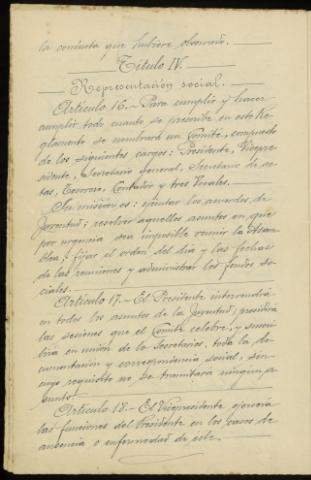 la conducta que hubiere observado.
Título IV.
Representación social.
Artículo 16.- Para cumplir y hacer
cumplir todo cuanto se prescribe en este Re-
glamento se nombrará un Comité, compuesto
de los siguientes cargos: Presidente, Vicepre-
sidente, Secretario general, Secretario de ac-
tas, Tesorero, Contador y tres Vocales.
Su misión es: ejecutar los acuerdos de
Juventud; resolver aquellos asuntos en que
por urgencia sea imposible reunir la Asam-
blea; fijar el orden del día y las fechas
de las reuniones y administrar los fondos so-
ciales.
Artículo 17.- El Presidente intervendrá
en todos los asuntos de la Juventud; presidirá
las sesiones que el Comité celebre, y suscri-
birá en unión de los Secretarios, toda la do-
cumentación y correspondencia social, sin
cuyo requisito no se tramitará ningún a-
sunto.
Artículo 18.- El Vicepresidente ejercerá
las funciones del Presidente en los casos de
ausencia o enfermedad de éste.